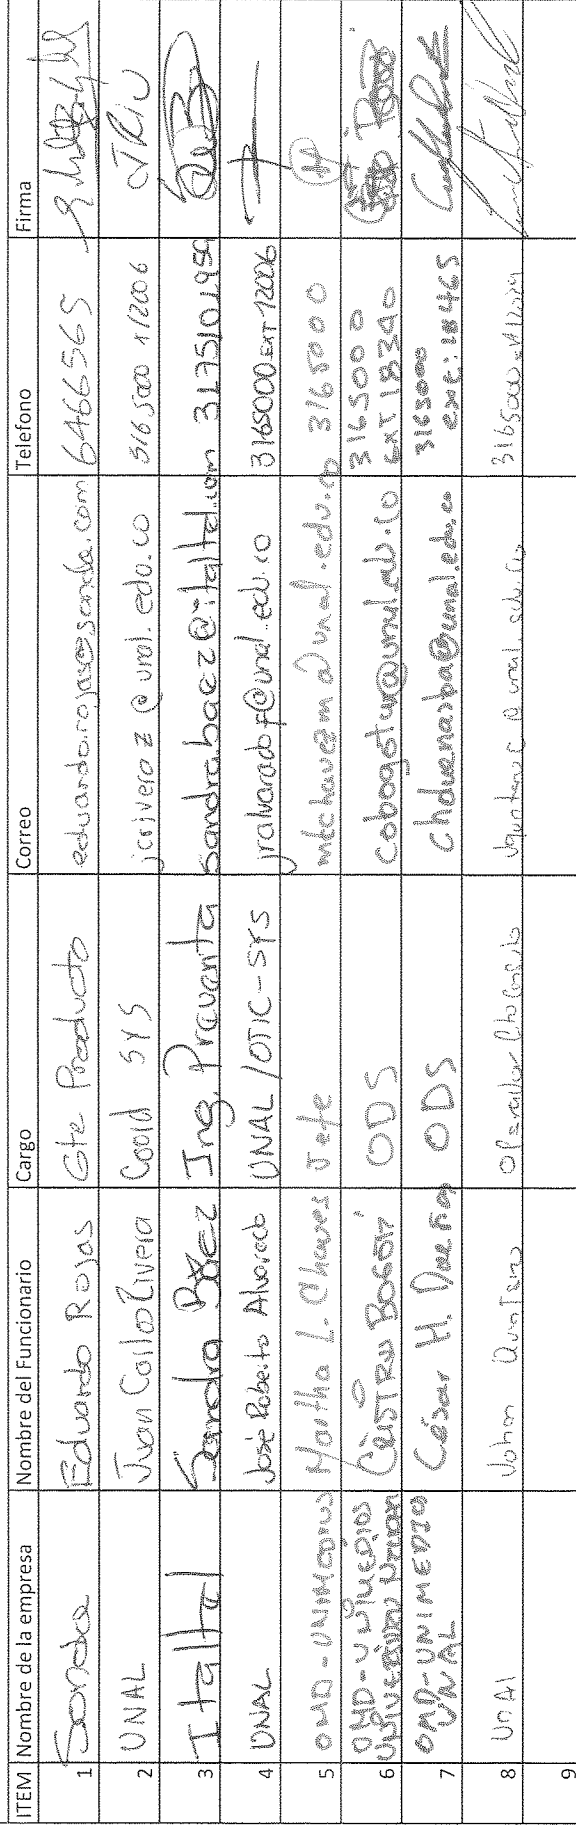 ITEM Nombre de la empresa Nombre del Funcionario Cargo Correo Telefono Firma
1 Sonda Eduardo Rojas Gte Producto eduardo.rojas@sonda.com 6466565
2 UNAL Juan Carlos Rivera Coord SYS jcriveraz@unal.edu.co 3165000 x12006
3 Italtel Sandra Báez Ing. Preventa sandra.baez@italtel.com
4 UNAL José Roberto Alvarado UNAL/OTIC-SYS jralvaradof@unal.edu.co 3165000 EXT 12006
5 OMD-UNIMEDIOS Martha L. Chaves Jefe mlchavezm@unal.edu.co 3165000
6 OMD-UNIMEDIOS ODS cobogotay@unal.edu.co 3165000 EXT 18390
7 OMD-UNIMEDIOS UNAL César H. Dueñas ODS chduenasba@unal.edu.co 3165000 EXT: 18465
8 UNAl John Quintero
9